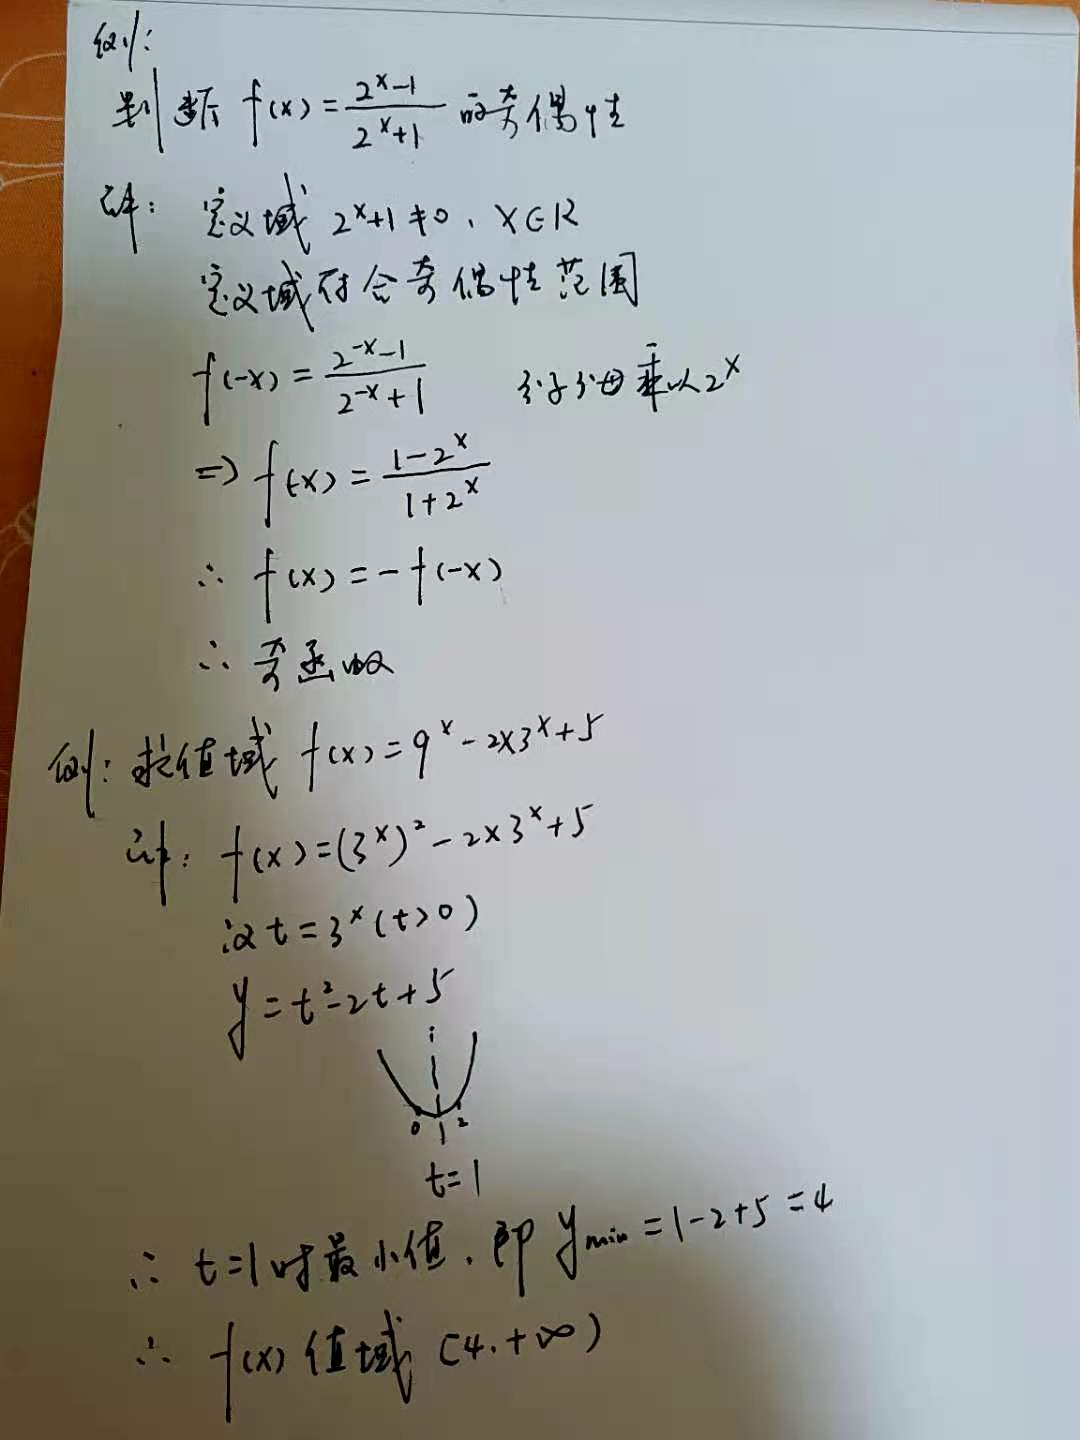 例:
判断 f(x) = (2^x-1)/(2^x+1) 的奇偶性
解: 定义域 2^x+1≠0, x∈R
定义域符合奇偶性范围
f(-x) = (2^-x-1)/(2^-x+1) 分子分母乘以2^x
⇒ f(-x) = (1-2^x)/(1+2^x)
∴ f(x) = -f(-x)
∴ 奇函数
例: 求值域 f(x) = 9^x - 2×3^x + 5
解: f(x) = (3^x)² - 2×3^x + 5
设 t = 3^x (t>0)
y = t² - 2t + 5
0 1 2
t=1
∴ t=1时最小值, 即 y min = 1-2+5 = 4
∴ f(x) 值域 [4, +∞)